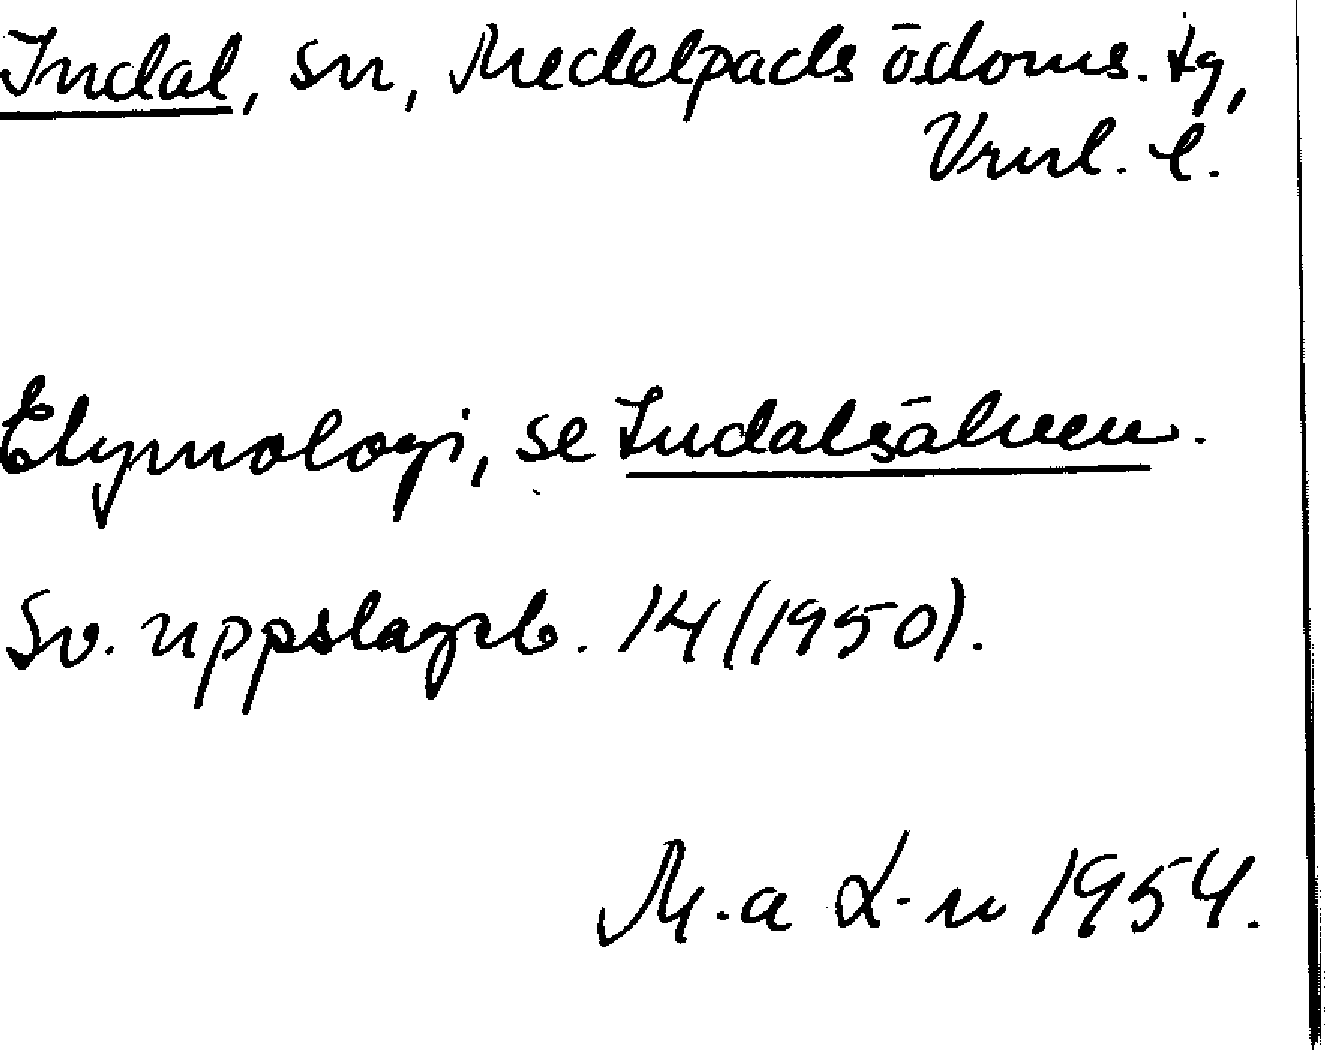 Indal, sn, Medelpads ö.doms. tg,
Vrnl. l.
Etymologi, se Indalsälven.
Sv. uppslagsb. 14 (1950).
M-a L-n 1954.